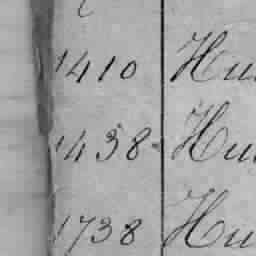 1410 Hu
1438 Hu
1738 Hu